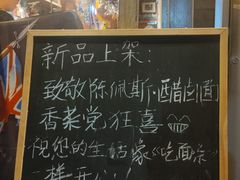 新品上架:
致敬陈佩斯·醋卤面
香菜党狂喜
祝您的生活像《吃面条》
一样开心!